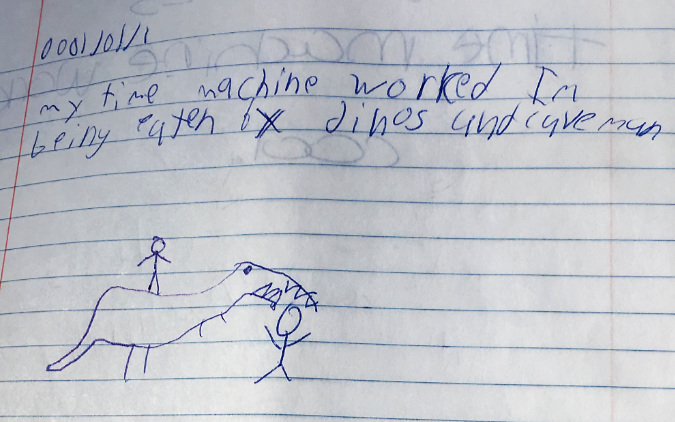 0001/01/1
my time machine worked Im
being eaten by dinos and caveman